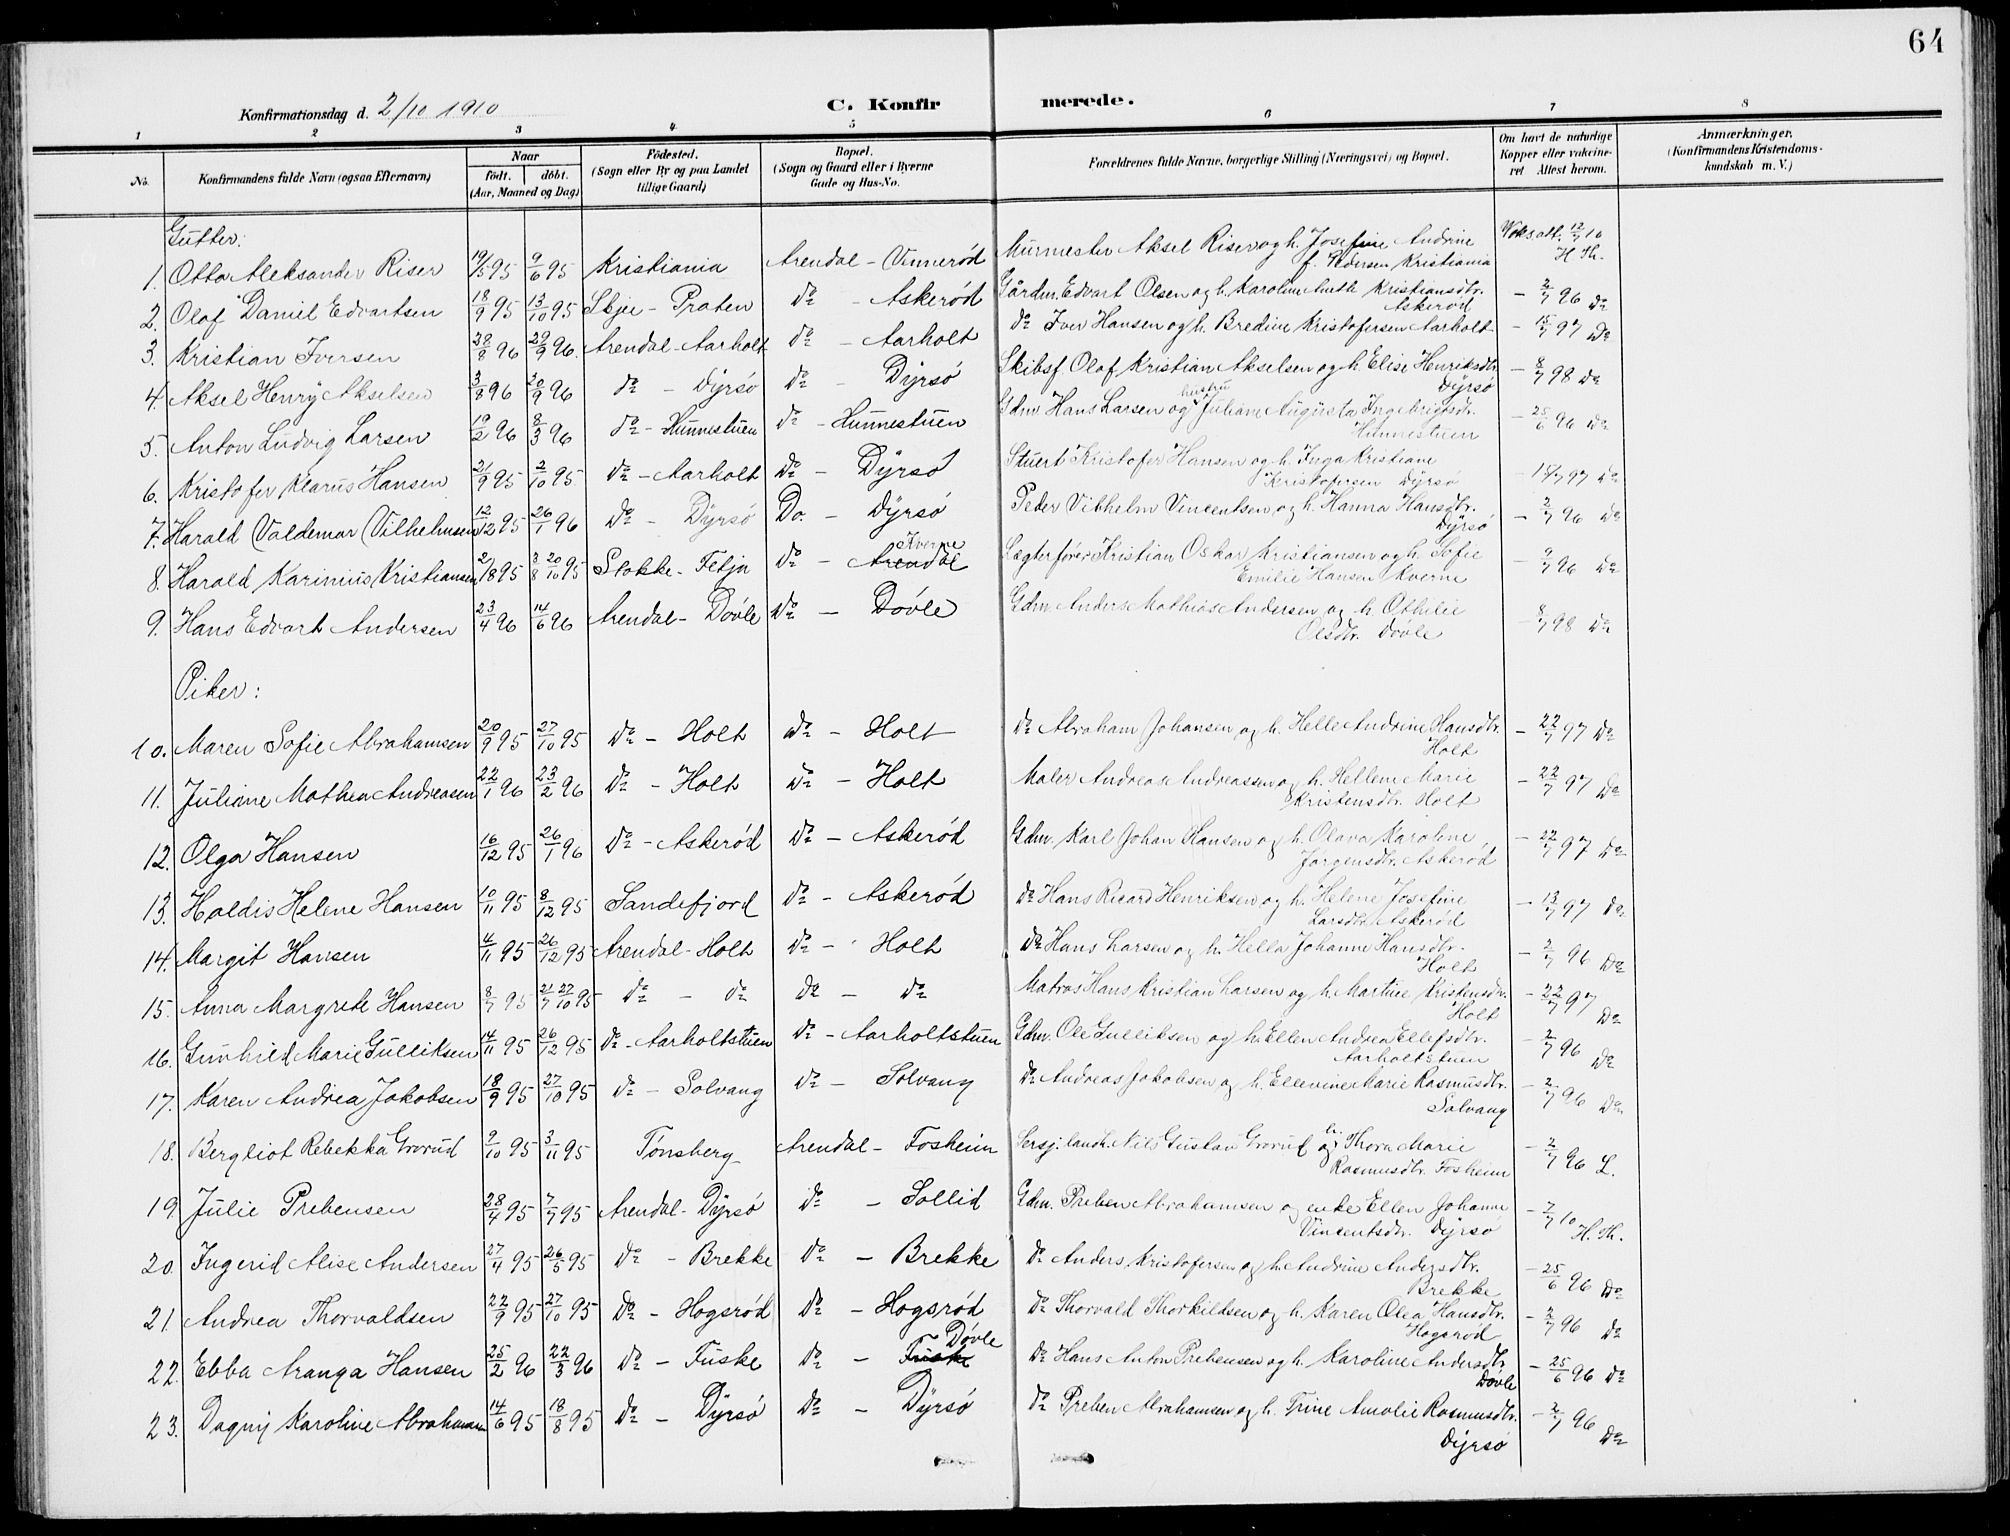 64
Konfirmationsdag d. 2/10 1910
C. Konfirmerede.
1 2 3 4 5 6 7 8
No. Konfirmandens fulde Navn (ogsaa Efternavn) Naar födt. döbt. (Aar, Maaned og Dag) Födested. (Sogn eller By og paa Landet tillige Gaard) Bopæl. (Sogn og Gaard eller i Byerne Gade og Hus-No. Forældrenes fulde Navne, borgerlige Stilling (Næringsvei) og Bopæl. Om havt de naturlige Kopper eller vakcineret Attest herom. Anmærkninger. (Konfirmandens Kristendomskundskab m. V.)
Gutter:
1. Otto Aleksander Riser 19/5 95 9/6 95 Kristiania Arendal - Vinnerød Murmester Aksel Riser og h. Josefine Andrine f. Pedersen Kristiania Vaks att. 12/7 10 H Th.
2. Olaf Daniel Edvartsen 18/9 95 13/10 95 Skjee - Praten do - Askerød Gårdm. Edvart Olsen og h. Karoline Kristiansdtr. Askerød - 2/7 96 do
3. Kristian Iversen 28/8 96 29/9 96 Arendal - Aarholt do - Aarholt do Iver Hansen og h. Bredine Kristofersen Aarholt - 15/7 97 do
4. Aksel Henry Akselsen 3/8 96 20/9 96 do - Dÿrsø do - Dÿrsø Skibsf. Olaf Kristian Akselsen og h. Elise Henriksdtr. Dÿrsø - 8/7 98 do
5. Anton Ludvig Larsen 19/2 96 8/3 96 do - Hunnestuen do - Hunnestuen Gdm Hans Larsen og hustru Juliane Augusta Ingebrigtsdtr. Hunnestuen - 25/6 96 do
6. Kristofer Klarus Hansen 21/9 95 2/10 95 do - Aarholt do - Dÿrsø Stuert Kristofer Hansen og h. Inga Kristiane Kristofersen Dÿrsø - 15/7 97 do
7. Harald Valdemar Vilhelmsen 12/12 95 26/1 96 do - Dÿrsø Do. - Dÿrsø Peder Vilhelm Vincentsen og h. Hanna Hansdtr. Dÿrsø - 2/7 96 do
8. Harald Karinius Kristiansen 2/8 95 8/8 20/10 95 Stokke - Felja do - Arendal Kverne Lægterfører Kristian Oskar Kristiansen og h. Sofie Emilie Hansen Kverne - 9/7 96 do
9. Hans Edvart Andersen 23/4 96 14/6 96 Arendal - Døvle do - Døvle Gdm. Anders Mathias Andersen og h. Othilie Olsdtr. Døvle - 8/7 98 do
Piker:
10. Maren Sofie Abrahamsen 20/9 95 27/10 95 do - Holt do - Holt do Abraham Johansen og h. Helle Andrine Hansdtr. Holt - 22/7 97 do
11. Juliane Mathea Andreasen 22/1 96 23/2 96 do - Holt do - Holt Maler Andreas Andreassen og h. Hellene Marie Kristensdtr. Holt - 22/7 97 do
12. Olga Hansen 16/12 95 26/1 96 do - Askerød do - Askerød Gdm. Karl Johan Hansen og h. Olava Karoline Jørgensdtr. Askerød - 22/7 97 do
13. Haldis Helene Hansen 10/11 95 8/12 95 Sandefjord do - Askerød do Hans Ricard Henriksen og h. Helene Josefine Larsdtr. Askerød - 13/7 97 do
14. Margit Hansen 4/11 95 26/12 95 Arendal - Holt do - Holt do Hans Larsen og h. Hella Johanne Hansdtr. Holt - 2/7 96 do
15. Anna Margrete Hansen 8/7 95 21/7 27/10 95 do - do do - do Matros Hans Kristian Larsen og h. Martine Kristensdtr. Holt - 22/7 97 do
16. Gunhild Marie Gulliksen 14/11 95 26/12 95 do - Aarholtstuen do - Aarholtstuen Gdm. Ole Gulliksen og h. Ellen Andrea Ellefsdtr. Aarholtstuen - 2/7 96 do
17. Karen Andrea Jakobsen 18/9 95 27/10 95 do - Solvang do - Solvang do Andreas Jakobsen og h. Ellevine Marie Rasmusdtr. Solvang - 2/7 96 do
18. Bergliot Rebekka Grorud 9/10 95 3/11 95 Tønsberg Arendal - Fosheim Sersj. landh. Nils Gustav Grorud og h. Thora Marie Rasmusdtr. Fosheim - 2/7 96 L.
19. Julie Prebensen 28/4 95 7/7 95 Arendal - Dÿrsø do - Sollid Gdm. Preben Abrahamsen og enke Ellen Johanne Vincentsdtr. Dÿrsø - 7/7 10 H. Th.
20. Ingerid Alise Andersen 27/4 95 26/5 95 do - Brekke do - Brekke do Anders Kristofersen og h. Andrine Andersdtr. Brekke - 25/6 96 do
21. Andrea Thorvaldsen 22/9 95 27/10 95 do - Hogsrød do - Hogsrød do Thorvald Thorkildsen og h. Karen Olea Hansdtr. Hogsrød - 2/7 96 do
22. Ebba Aranga Hansen 25/2 96 22/3 96 do - Fuske do - Fuske Døvle do Hans Anton Prebensen og h. Karoline Andersdtr. Døvle - 25/6 96 do
23. Dagny Karoline Abrahamsen 14/6 95 18/8 95 do - Dÿrsø do - Dÿrsø do Preben Abrahamsen og h. Trine Amalie Rasmusdtr. Dÿrsø - 2/7 96 do